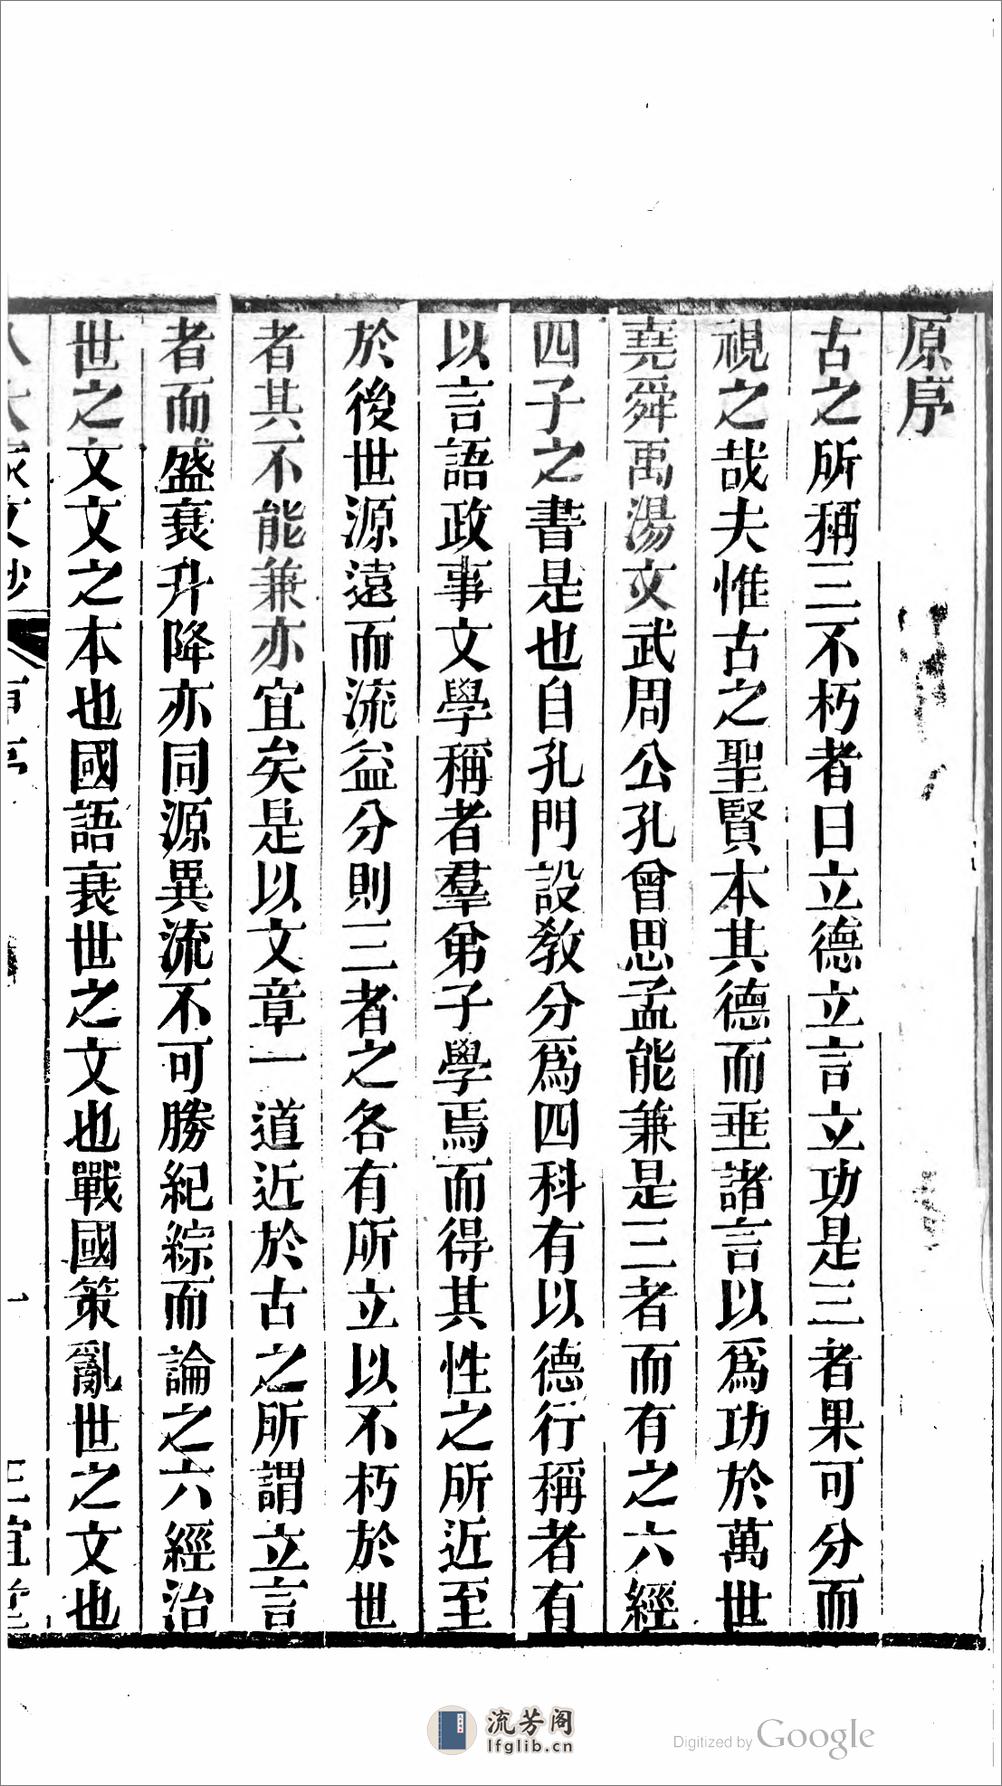 原序
古之所稱三不朽者曰立德立言立功是三者果可分而
視之哉夫惟古之聖賢本其德而垂諸言以爲功於萬世
堯舜禹湯文武周公孔曾思孟能兼是三者而有之六經
四子之書是也自孔門設教分爲四科有以德行稱者有
以言語政事文學稱者羣弟子學焉而得其性之所近至
於後世源遠而流益分則三者之各有所立以不朽於世
者其不能兼亦宜矣是以文章一道近於古之所謂立言
者而盛衰升降亦同源異流不可勝紀綜而論之六經治
世之文文之本也國語衰世之文也戰國策亂世之文也
八大家文鈔 原序 一 正誼堂
流芳阁
lfglib.cn
Digitized by Google